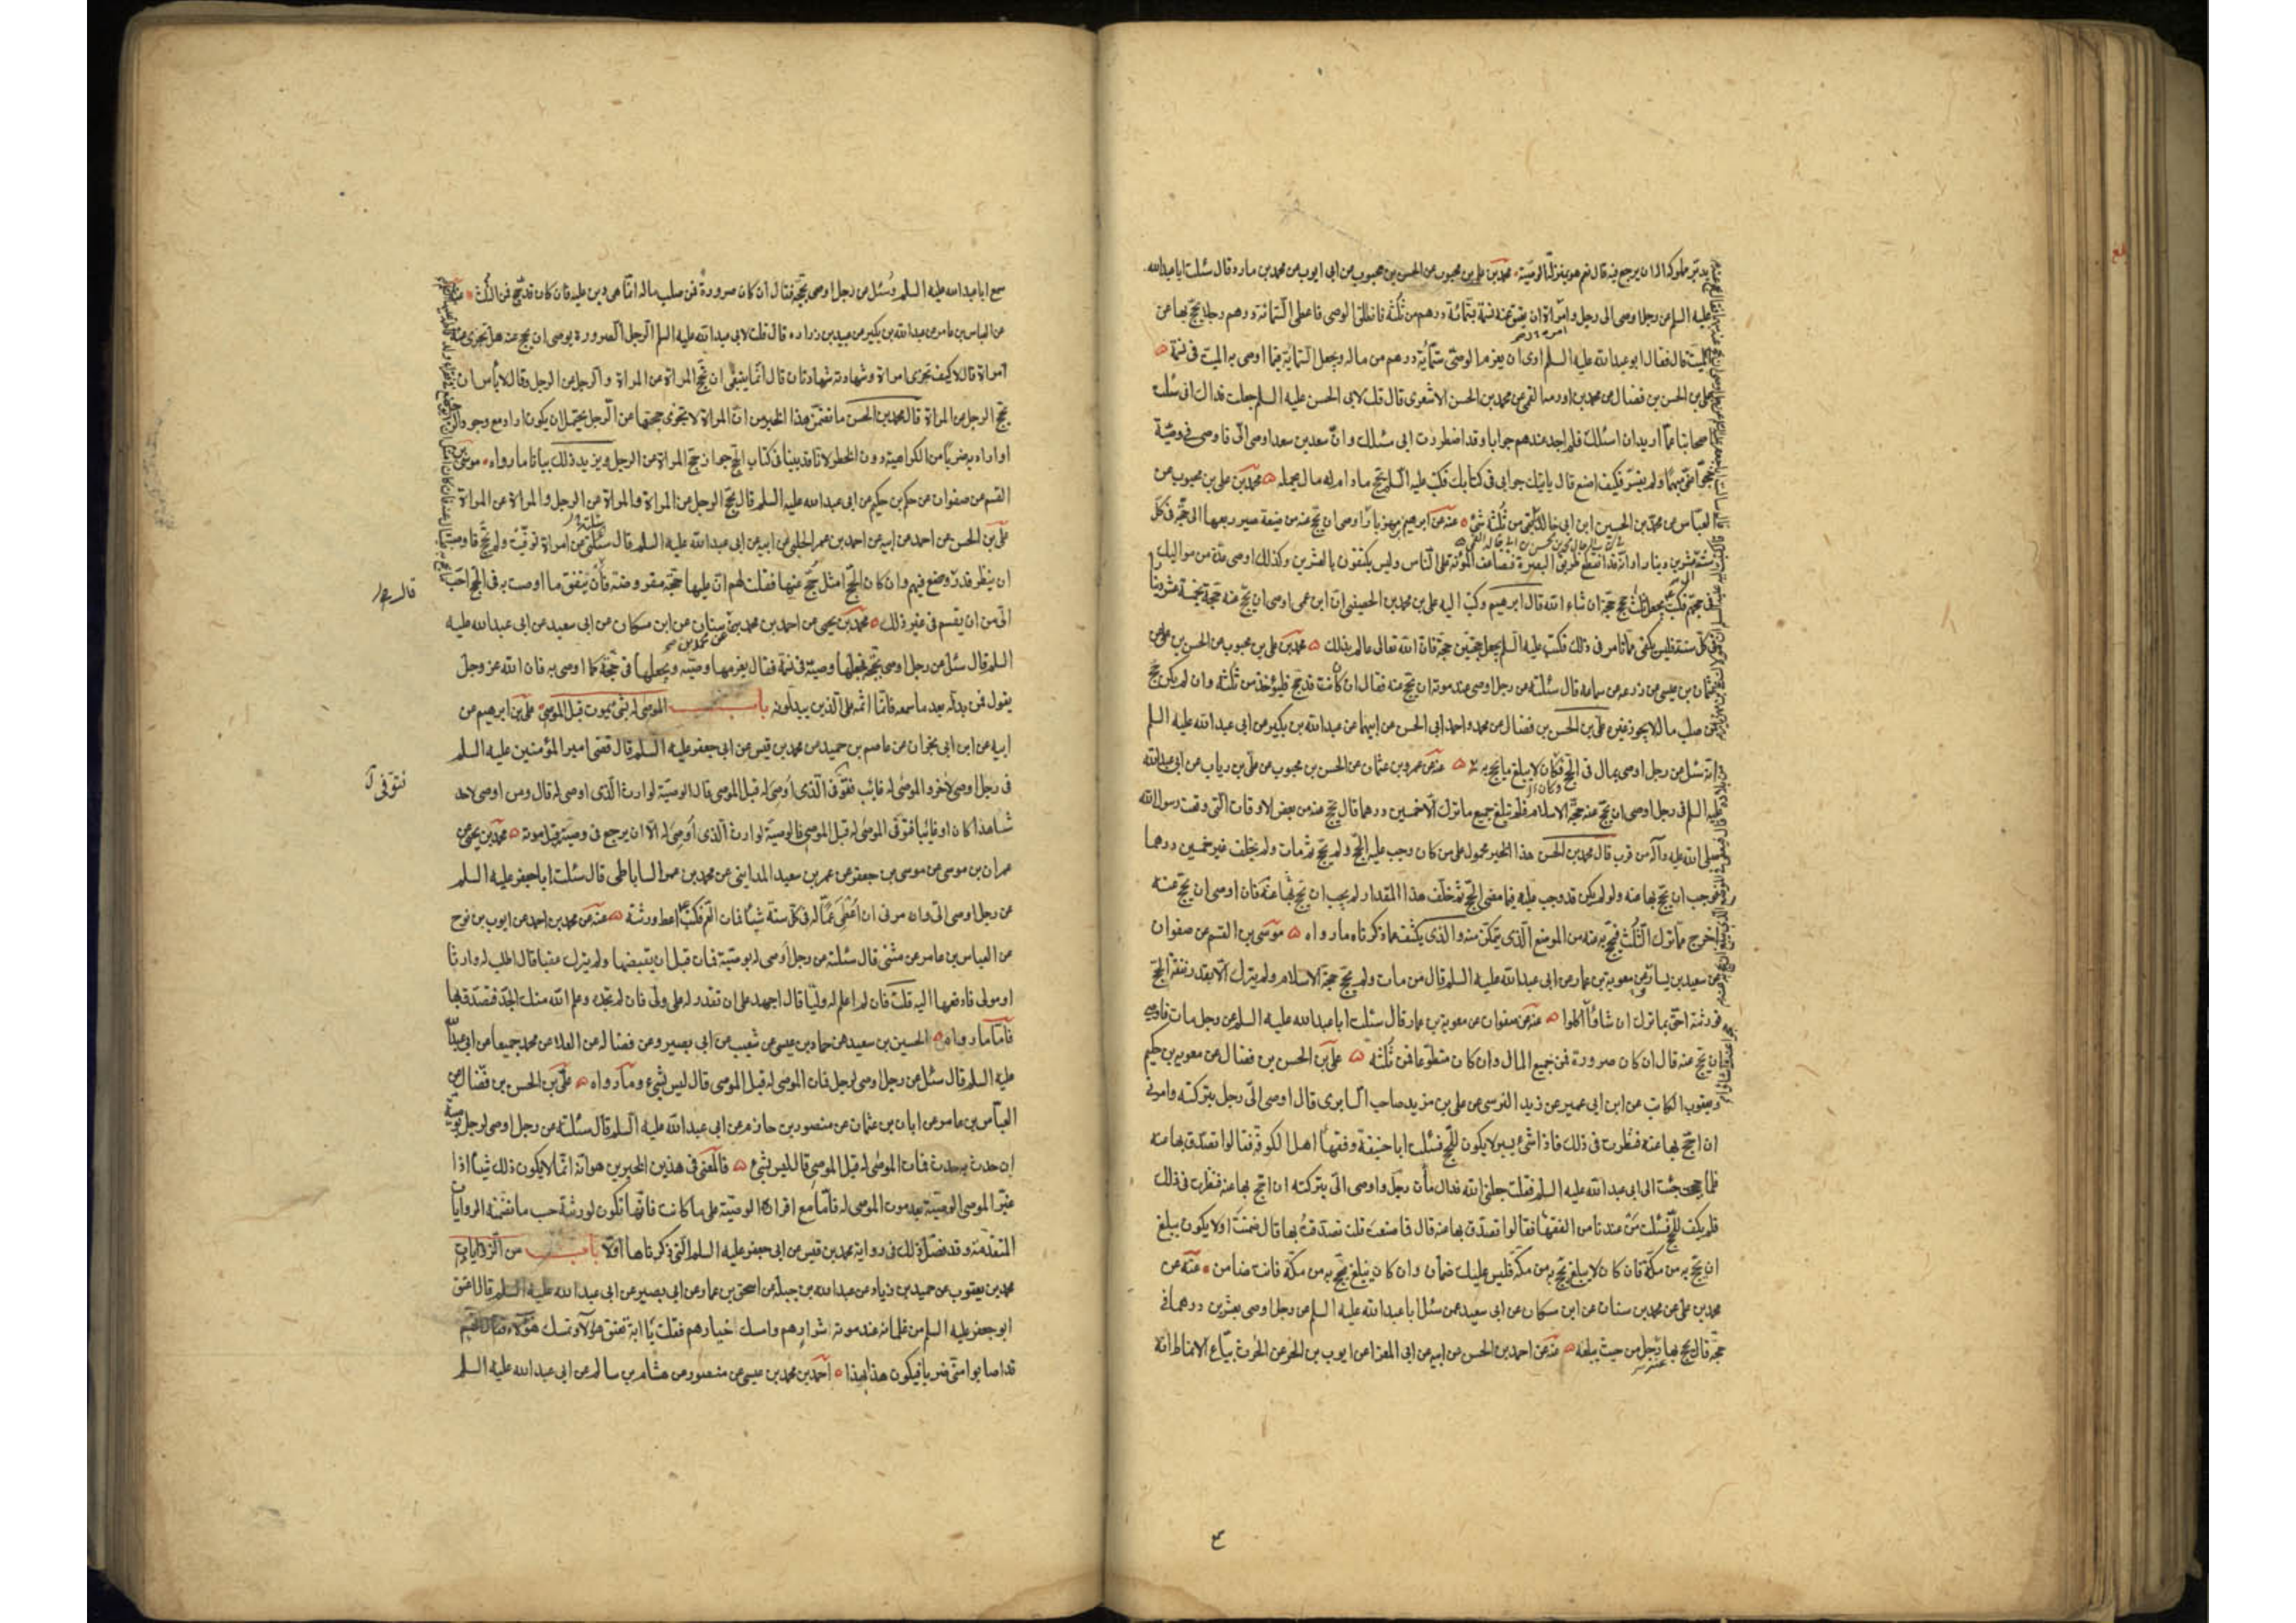 يدبر مملوكه اله ان يرجع فيه قال نعم هو بمنزلة الوصية محمد بن علي بن محبوب عن الحسن بن محبوب عن ابى ايوب عن محمد بن مارد قال سئلت ابا عبد الله
عليه السلم عن رجل اوصى الى رجل وامره ان يعتق عنه نسمة بستمائة درهم من ثلثه فانطلق الوصى فاعطى الستمائة درهم رجلا يحج بها عن
الميت قال فقال ابو عبد الله عليه السلم ارى ان يغرم الوصى ستمائة درهم من ماله ويجعل الستماية فيما اوصى به الميت فى نسمة
على بن الحسن بن فضال عن محمد بن اورمة القمى عن محمد بن الحسن الاشعرى قال قلت لابى الحسن عليه السلم جعلت فداك انى سئلت
اصحابنا عما اريد ان اسئلك فلم اجد عندهم جوابا وقد اضطررت الى مسئلتك وان سعد بن سعد اوصى الى فاوصى فى وصيته
حجوا عنى مبهما ولم يفسر فكيف اصنع قال ياتيك جوابى فى كتابك فكتب عليه السلم يحج مادام له مال يحمله محمد بن على بن محبوب عن
العباس عن محمد بن الحسين ابن ابى خالد بقى من ثلثه شئ عنه عن ابرهيم بن مهزيار اوصى ان يحج عنه من ضيعة صير ربعها الى حجة فى كل
سنة عشرين دينارا وانه قد انقطع طريق البصرة فتضاعف المؤنة على الناس وليس يكتفون بالعشرين وكذلك اوصى عدة من مواليك
فى حججهم فكتب يجعل ثلث حجج حجتين ان شاء الله قال ابرهيم وكتب اليه على بن محمد بن الحصينى ان ابن عمى اوصى ان يحج عنه حجة بخمسة عشر دينارا
فى كل سنة فليس يكفى فما تامر فى ذلك فكتب عليه السلم يجعل حجتين حجة فان الله تعالى عالم بذلك محمد بن على بن محبوب عن الحسن بن على عن
عثمان بن عيسى عن زرعة عن سماعة قال سئلته عن رجل اوصى عند موته ان يحج عنه فقال ان كانت قد حج فليؤخذ من ثلثه وان لم يكن حج
فمن صلب ماله لا يجوز غيره على بن الحسن بن فضال عن محمد واحمد ابنى الحسن عن ابيهما عن عبد الله بن بكير عن ابى عبد الله عليه السلم
انه سئل عن رجل اوصى بمال فى الحج فكان لا يبلغ ما يحج به عنه عن عمرو بن عثمان عن الحسن بن محبوب عن على بن رياب عن ابى عبد الله
عليه السلم فى رجل اوصى ان يحج عنه حجة الاسلام فلم تبلغ جميع ما ترك الا خمسين درهما قال يحج عنه من بعض الاوقات التى وقت رسول الله
صلى الله عليه وآله من قرب قال محمد بن الحسن هذا الخبر محمول على من كان وجب عليه الحج ولم يحج ثم مات ولم يخلف غير خمسين درهما
فوجب ان يحج بها عنه ولو لم يكن قد وجب عليه فيما مضى الحج ثم خلف هذا المقدار لم يجب ان يحج بها عنه فان اوصى ان يحج عنه
اخرج مما ترك الثلث فحج به عنه من الموضع الذى يتمكن منه والذى يكشف عما ذكرناه ما رواه موسى بن القسم عن صفوان
عن سعيد بن يسار عن معوية بن عمار عن ابى عبد الله عليه السلم قال من مات ولم يحج حجة الاسلام ولم يترك الا بقدر نفقة الحج
فورثته احق بما ترك ان شاؤا اكلوا عنه عن صفوان عن معوية بن عمار قال سئلت ابا عبد الله عليه السلم عن رجل مات فاوصى
ان يحج عنه قال ان كان صرورة فمن جميع المال وان كان متطوعا فمن ثلثه على بن الحسن بن فضال عن معوية بن حكيم
ويعقوب الكاتب عن ابن ابى عمير عن زيد النرسى عن على بن مزيد صاحب السابرى قال اوصى الى رجل بتركته وامرنى
ان احج بها عنه فنظرت فى ذلك فاذا شئ يسير لا يكون للحج فسئلت ابا حنيفة وفقهاء اهل الكوفة فقالوا تصدق بها عنه
فلما حججت جئت الى ابى عبد الله عليه السلم فقلت جعلنى الله فداك مات رجل واوصى الى بتركته ان احج بها عنه فنظرت فى ذلك
فلم يكف للحج فسئلت من عندنا من الفقهاء فقالوا تصدق بها عنه قال فما صنعت قلت تصدقت بها قال ضمنت او لا يكون يبلغ
ان يحج به من مكة فان كان لا يبلغ يحج به من مكة فليس عليك ضمان وان كان يبلغ يحج به من مكة فانت ضامن عنه عن
محمد بن على عن محمد بن سنان عن ابن مسكان عن ابى سعيد عمن سئل ابا عبد الله عليه السلم عن رجل اوصى بعشرين درهما فى
حجة قال يحج بها رجل من حيث يبلغه عنه عن احمد بن الحسن عن ابيه عن ابى المعزا عن ايوب بن الحر عن الحرث بياع الانماط انه
سمع ابا عبد الله عليه السلم وسئل عن رجل اوصى بحجة فقال ان كان صرورة فمن صلب ماله انما هى دين عليه فان كان قد حج فمن الثلث عنه
عن العباس بن عامر عن عبد الله بن بكير عن عبيد بن زراره قال قلت لابى عبد الله عليه السلم الرجل الصرورة يوصى ان يحج عنه هل تجزى عنه
امراة قال لا كيف تجزى امراة وشهادته شهادتان قال انما ينبغى ان تحج المراة عن المراة والرجل عن الرجل وقال لا باس ان
يحج الرجل عن المراة قال محمد بن الحسن ما تضمن هذا الخبر من ان المراة لا تجزى حجتها عن الرجل يحتمل ان يكون اراد مع وجود الرجل
او اراد به ضربا من الكراهية دون الحظر لانا قد بينا فى كتاب الحج جواز حج المراة عن الرجل ويزيد ذلك بيانا ما رواه موسى بن
القسم عن صفوان عن حكم بن حكيم عن ابى عبد الله عليه السلم قال يحج الرجل عن المراة والمراة عن الرجل والمراة عن المراة
على بن الحسن عن احمد عن ابيه عن احمد بن عمر الحلبى عن ابيه عن ابى عبد الله عليه السلم قال سئلنى عن امراة توفيت ولم تحج فاوصت
ان ينظر قدر ما يحج به فان كان الحج امثل حج عنها فقلت لهم ان عليها حجة مفروضة فان ينفق ما اوصت به فى الحج احب
الى من ان يقسم فى غير ذلك محمد بن يحيى عن احمد بن محمد عن محمد بن سنان عن ابن مسكان عن ابى سعيد عن ابى عبد الله عليه
السلم قال سئل عن رجل اوصى بحجة فجعلها وصيه فى نسمة فقال يغرمها وصيه ويجعلها فى حجة كما اوصى به فان الله عز وجل
يقول فمن بدله بعد ما سمعه فانما اثمه على الذين يبدلونه باب الموصى له بشئ يموت قبل الموصى على بن ابرهيم عن
ابيه عن ابن ابى نجران عن عاصم بن حميد عن محمد بن قيس عن ابى جعفر عليه السلم قال قضى امير المؤمنين عليه السلم
فى رجل اوصى لاخر والموصى له غائب فتوفى الذى اوصى له قبل الموصى قال الوصية لوارث الذى اوصى له قال ومن اوصى لاحد
شاهدا كان او غائبا فتوفى الموصى له قبل الموصى فالوصية لوارث الذى اوصى له الا ان يرجع فى وصيته قبل موته محمد بن يحيى عن
عمران بن موسى عن موسى بن جعفر عن عمر بن سعيد المداينى عن محمد بن عمر الساباطى قال سئلت ابا جعفر عليه السلم
عن رجل اوصى الى وامرنى ان اعطى عما له فى كل سنة شيئا فمات العم فكتب اعط ورثته عنه عن محمد بن احمد عن ايوب بن نوح
عن العباس بن عامر عن مثنى قال سئلته عن رجل اوصى له بوصية فمات قبل ان يقبضها ولم يترك عقبا قال اطلب له وارثا
او مولى فادفعها اليه قلت فان لم اعلم له وليا قال اجهد على ان تقدر له على ولى فان لم تجده وعلم الله منك الجد فتصدق بها
فاما ما رواه الحسين بن سعيد عن حماد بن عيسى عن شعيب عن ابى بصير وعن فضالة عن العلا عن محمد جميعا عن ابى عبد الله
عليه السلم قال سئل عن رجل اوصى لرجل فمات الموصى له قبل الموصى قال ليس بشئ وما رواه على بن الحسن بن فضال عن
العباس بن عامر عن ابان بن عثمان عن منصور بن حازم عن ابى عبد الله عليه السلم قال سئلته عن رجل اوصى لرجل بوصية
ان حدث به حدث فمات الموصى له قبل الموصى قال ليس بشئ فالمعنى فى هذين الخبرين هو انه انما لا يكون ذلك شيئا اذا
غير الموصى الوصية بعد موت الموصى له فاما مع اقراره الوصية على ما كانت فانها تكون لورثته حسب ما تضمنه الروايات
المتقدمة وقد فصل ذلك فى رواية محمد بن قيس عن ابى جعفر عليه السلم التى ذكرناها اولا باب من الزيادات
محمد بن يعقوب عن حميد بن زياد عن عبد الله بن جبلة عن اسحق بن عمار عن ابى بصير عن ابى عبد الله عليه السلم قال اعتق
ابو جعفر عليه السلم من غلمانه عند موته شرارهم وامسك خيارهم فقلت يا ابة تعتق هؤلاء وتمسك هؤلاء فقال انهم
قد اصابوا منى ضربا فيكون هذا بهذا احمد بن محمد بن عيسى عن منصور عن هشام بن سالم عن ابى عبد الله عليه السلم